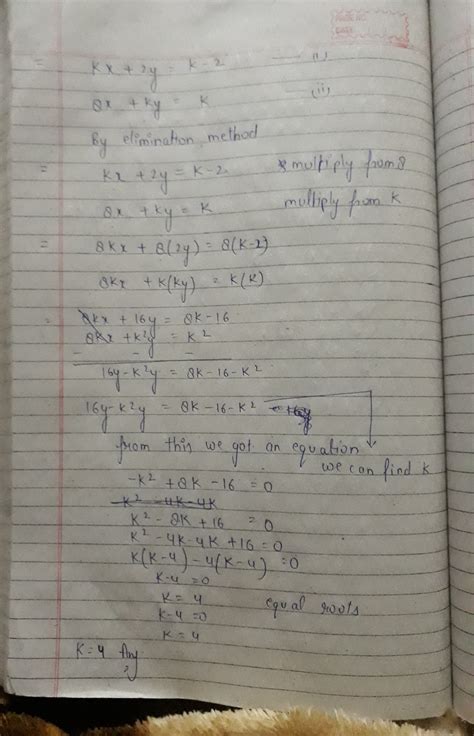 = Kx + 2y = K-2 — (i)
8x + Ky = K (ii)
By elimination method
= Kx + 2y = K-2 multiply from 8
8x + Ky = K multiply from K
= 8Kx + 8(2y) = 8(K-2)
8Kx + K(Ky) = K(K)
= 8Kx + 16y = 8K-16
8Kx + K²y = K²
- - -
16y-K²y = 8K-16-K²
16y-K²y = 8K-16-K²
from this we got an equation
we can find K
-K² + 8K-16 = 0
K² -4K-4K
K² - 8K + 16 = 0
K² - 4K-4K + 16 = 0
K(K-4) -4(K-4) = 0
K-4 = 0
K = 4 equal roots
K-4 = 0
K = 4
K = 4 Ans